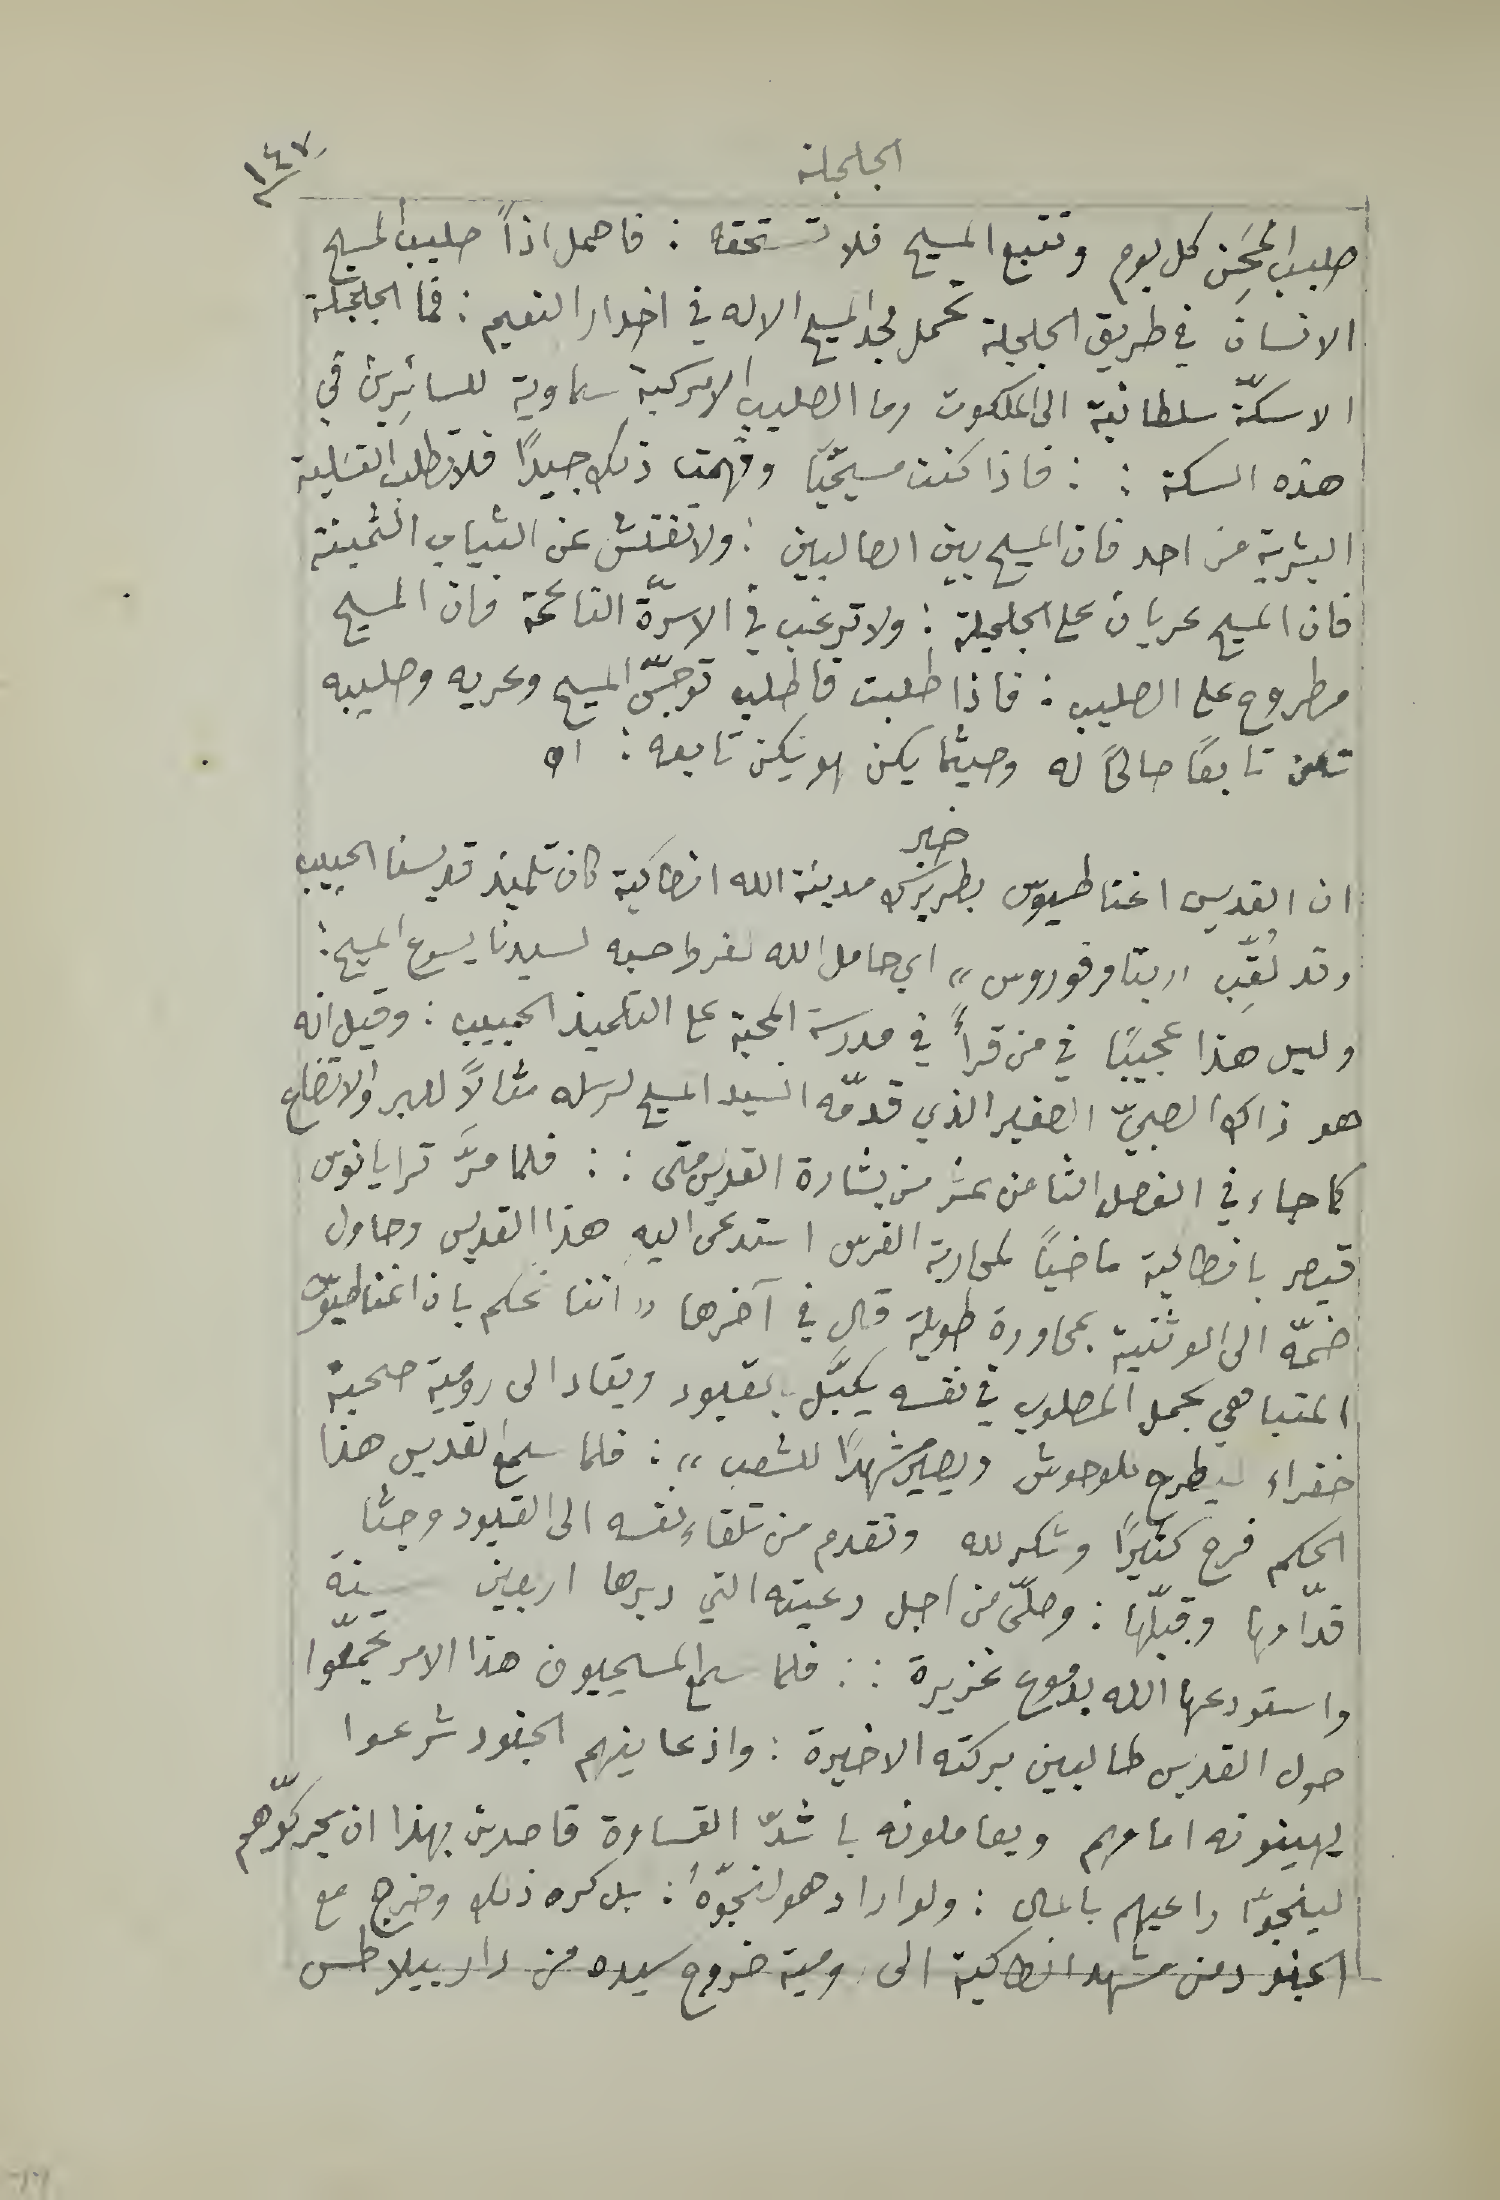 الجلجلة
١٤٧
صليب المِحَن كل يوم وتتبع المسيح فلا تستحقه : فاحمل اذاً صليب المسيح
الانسان في طريق الجلجلة تحمل مجد المسيح الاله في اخدار النعيم : فما الجلجلة
الا سكّة سلطانية الى الملكوت وما الصليب الا مركبة سماوية للسائرين في
هذه السكة : : فاذا كنت مسيحيًا وفهمت ذلك جيدًا فلا تطلب التسلية
البشرية من احد فان المسيح بين الصالبين : ولا تفتش عن الثياب الثمينة
فان المسيح عريان على الجلجلة : ولا ترغب في الاسرّة الناعمة فان المسيح
مطروح على الصليب : فاذا طلبت فاطلب توجّع المسيح وعريه وصليبه
تكن تابعًا صالحًا له وحيثما يكن هو يكن تابعه : اه
خبر
ان القديس اغناطيوس بطريرك مدينة الله انطاكية كان تلميذ قديسنا الحبيب
وقد لُقِّب " بتاوفوروس " اي حامل الله لفرط حبه لسيدنا يسوع المسيح :
وليس هذا عجيبًا في من قرأ في مدرسة المحبة على التلميذ الحبيب : وقيل انه
هو ذاك الصبيّ الصغير الذي قدمّه السيد المسيح لرسله مثالاً للبر والاتضاع
كما جاء في الفصل الثامن عشر من بشارة القديس متى : : فلما مرَّ ترايانوس
قيصر بانطاكية ماضيًا لمحاربة الفرس استدعى اليه هذا القديس وحاول
ضمّه الى الوثنية بمحاورة طويلة قال في آخرها " اننا نحكم بان اغناطيوس
المتباهي بحمل المصلوب في نفسه يكبَّل بالقيود ويقاد الى رومية صحبة
خفراء ليطرح للوحوش ويصير مشهدًا للشعب " : فلما سمع القديس هذا
الحكم فرح كثيرًا وشكر لله وتقدم من تلقاء نفسه الى القيود وجثا
قدّامها وقبّلها : وصلّى من اجل رعيته التي دبرها اربعين سنة
واستودعها الله بدموع غزيرة : : فلما سمع المسيحيون هذا الامر تجمّعوا
حول القديس طالبين بركته الاخيرة : واذ عاينهم الجنود شرعوا
يهينونه امامهم ويعاملونه باشدّ القساوة قاصدين بهذا ان يحركوّهم
لينجوّا راعيهم بالمال : ولو اراد هو لنجوّهُ : بل كره ذلك وخرج مع
الجنود من مشهد انطاكية الى رومية خروج سيده من دار بيلاطس